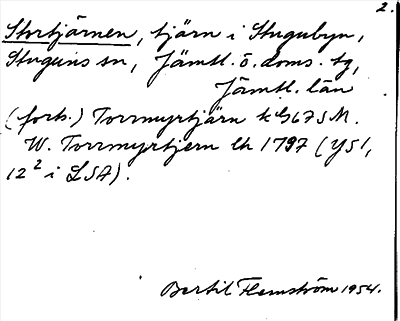 2.
Stortjärnen, tjärn i Stugubyn,
Stuguns sn, Jämtl. ö. doms. tg,
Jämtl. län
(forts.) Torrmyrtjärn 67 SM.
W. Torrmyrtjern lh 1797 (Y51,
12² i LSA).
Bertil Flemström 1954.